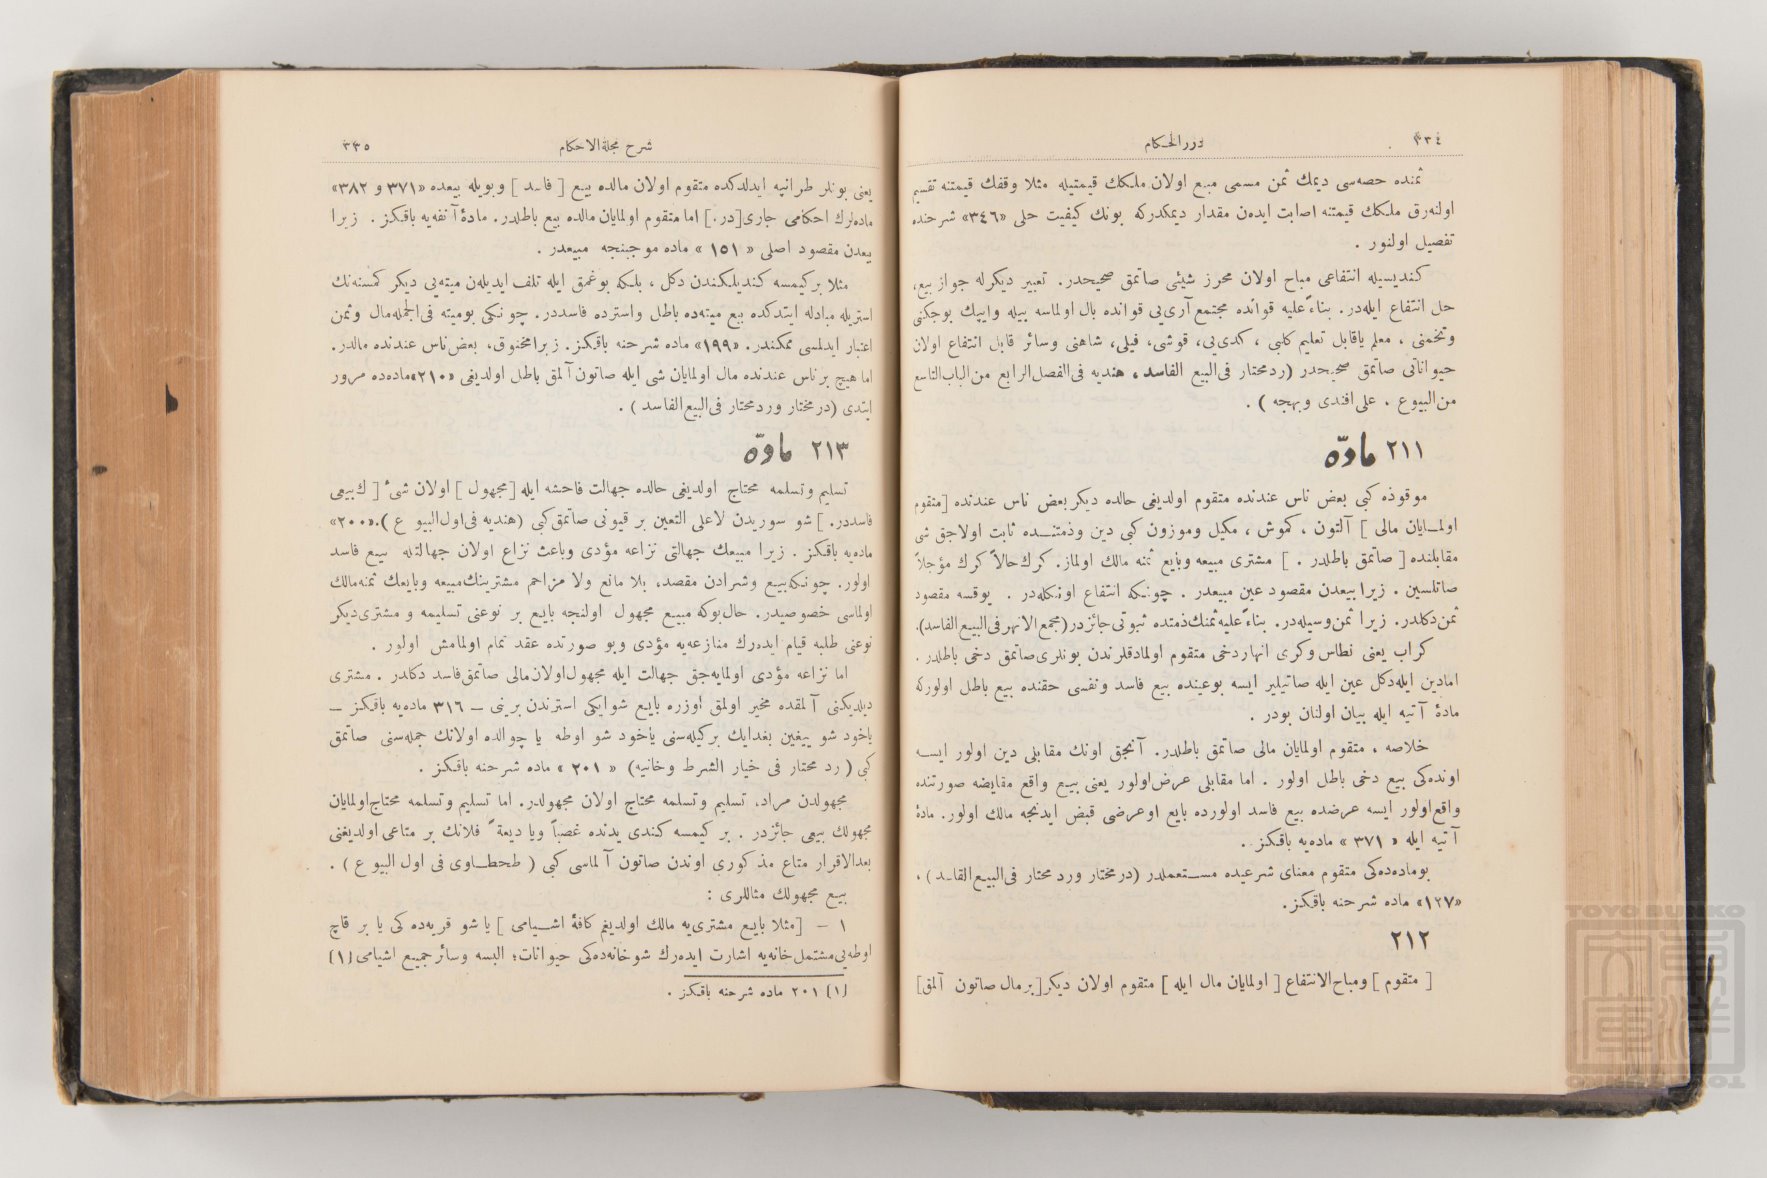 ٣٣٤
دررالحكام
ثمنده حصه‌سی دیمك ثمن مسمی مبیع اولان ملكك قیمتیله مثلا وقفك قیمتنه تقسیم
اولنه‌رق ملكك قیمتنه اصابت ایده‌ن مقدار دیمكدركه بونك كیفیت حلی «٣٤٦» شرحنده
تفصیل اولنور .
كندیسیله انتفاعی مباح اولان محرز شیئی صاتمق صحیحدر. تعبیر دیكرله جواز بیع،
حل انتفاع ایله‌در. بناءً علیه قوانده مجتمع آری‌یی قوانده بال اولماسه بیله وایپك بوجكنی
وتخمنی ، معلم یاقابل تعلیم كلبی ، كدی‌یی، قوشی، فیلی، شاهنی وسائر قابل انتفاع اولان
حیواناتی صاتمق صحیحدر (ردمحتار فی‌البیع الفاسد ، هندیه فی‌الفصل‌الرابع من‌الباب‌التاسع
من‌البیوع . علی‌افندی وبهجه ) .
٢١١ مادّه
موقوذه كبی بعض ناس عندنده متقوم اولدیغی حالده دیكربعض ناس عندنده [متقوم
اولمایان مالی ] آلتون ، كموش ، مكیل وموزون كبی دین وذمتنده ثابت اولاجق شی
مقابلنده [ صاتمق باطلدر . ] مشتری مبیعه وبایع ثمنه مالك اولماز. كرك‌حالاً كرك مؤجلاً
صاتلسین . زیرا بیعدن مقصود عین مبیعدر . چونكه انتفاع اونكله‌در . یوقسه مقصود
ثمن‌دكلدر. زیرا ثمن‌وسیله‌در. بناءً علیه‌ثمنك‌ذمتده ثبوتی‌جائزدر(مجمع‌الانهرفی‌البیع‌الفاسد).
كراب یعنی نطاس وكری انهاردخی متقوم اولمادقلرندن بونلری‌صاتمق دخی باطلدر .
امادین ایله‌دكل عین ایله صاتیلیر ایسه بوعینده بیع فاسد ونفسی حقنده بیع باطل اولوركه
مادۀ آتیه ایله بیان اولنان بودر .
خلاصه ، متقوم اولمایان مالی صاتمق باطلدر. آنجق اونك مقابلی دین اولور ایسه
اونده‌كی بیع دخی باطل اولور . اما مقابلی عرض‌اولور یعنی بیع واقع مقایضه صورتنده
واقع‌اولور ایسه عرضده بیع فاسد اولورده بایع اوعرضی قبض ایدنجه مالك اولور. مادۀ
آتیه ایله « ٣٧١ » ماده‌یه باقكز .
بوماده‌ده‌كی متقوم معنای شرعیده مستعملدر (درمختار ورد محتار فی‌البیع‌الفاسد) ،
«١٢٧» ماده شرحنه باقكز.
٢١٢
[ متقوم ] ومباح‌الانتفاع [ اولمایان مال ایله ] متقوم اولان دیكر[برمال صاتون آلمق]
شرح مجلة‌الاحكام
٣٣٥
یعنی بونلر طرانپه ایدلدكده متقوم اولان مالده بیع [ فاسد ] وبویله بیعده «٣٧١ و ٣٨٢»
ماده‌لرك احكامی جاری[در.] اما متقوم اولمایان مالده بیع باطلدر. مادۀ آنفه‌یه باقكز . زیرا
بیعدن مقصود اصلی « ١٥١ » ماده موجبنجه مبیعدر .
مثلا بركیمسه كندیلكندن دكل ، بلكه بوغمق ایله تلف ایدیله‌ن میته‌یی دیكر كمسنه‌نك
استریله مبادله ایتدكده بیع میته‌ده باطل واسترده فاسددر. چونكی بومیته فی‌الجمله‌مال وثمن
اعتبار ایدلمسی ممكندر. «١٩٩» ماده شرحنه باقكز. زیرامخنوق، بعض‌ناس عندنده مالدر.
اما هیچ برناس عندنده مال اولمایان شی ایله صاتون آلمق باطل اولدیغی «٢١٠»ماده‌ده مرور
ایتدی (درمختار وردمحتار فی‌البیع‌الفاسد ) .
٢١٣ مادّه
تسلیم وتسلمه محتاج اولدیغی حالده جهالت فاحشه ایله [مجهول ] اولان شیء [ ك‌بیعی
فاسددر. ] شو سوریدن لاعلی التعیین بر قیونی صاتمق‌كبی (هندیه فی‌اول‌البیو ع ).«٢٠٠»
ماده‌یه باقكز . زیرا مبیعك جهالتی نزاعه مؤدی وباعث نزاع اولان جهالتله بیع فاسد
اولور. چونكه‌بیع وشرادن مقصد، بلا مانع ولا مزاحم مشترینك‌مبیعه وبایعك ثمنه‌مالك
اولماسی خصوصیدر. حال‌بوكه مبیع مجهول اولنجه بایع بر نوعنی تسلیمه و مشتری‌دیكر
نوعنی طلبه قیام ایده‌رك منازعه‌یه مؤدی وبو صورتده عقد تمام اولمامش اولور .
اما نزاعه مؤدی اولمایه‌جق جهالت ایله مجهول‌اولان‌مالی صاتمق‌فاسد دكلدر . مشتری
دیلدیكنی آلمقده مخیر اولمق اوزره بایع شوایكی استرندن برینی — ٣١٦ ماده‌یه باقكز —
یاخود شو ییغین بغدایك بركیله‌سنی یاخود شو اوطه یا چوالده اولانك جمله‌سنی صاتمق
كبی ( رد محتار فی خیار الشرط وخانیه) « ٢٠١ » ماده شرحنه باقكز .
مجهولدن مراد، تسلیم وتسلمه محتاج اولان مجهولدر. اما تسلیم وتسلمه محتاج‌اولمایان
مجهولك بیعی جائزدر . بر كیمسه كندی یدنده غصباً ویا دیعةً فلانك بر متاعی اولدیغنی
بعدالاقرار متاع مذكوری اوندن صاتون آلماسی كبی ( طحطاوی فی اول البیو ع ) .
بیع مجهولك مثاللری :
١ — [مثلا بایع مشتری‌یه مالك اولدیغم كافۀ اشیامی ] یا شو قریه‌ده كی یا بر قاچ
اوطه‌یی‌مشتمل‌خانه‌یه اشارت ایده‌رك شوخانه‌ده‌كی حیوانات؛ البسه وسائر جمیع اشیامی (١)
(١) ٢٠١ ماده شرحنه باقكز .
TOYO BUNKO